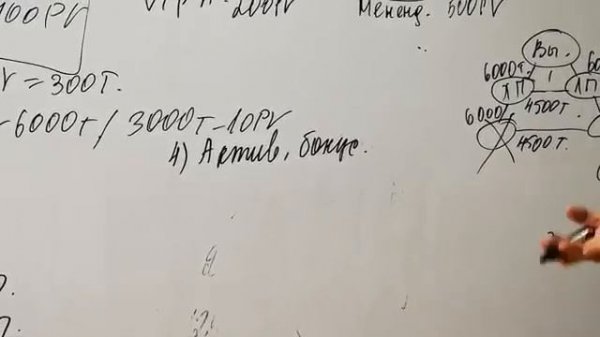 100PV
200PV
Менеd. 500PV
V = 300т.
6000т/3000т-10PV
4) Актив, бонус.
Вы.
6000т. 1 60
ЛП ЛП
4500т.
6000т.
4500т.